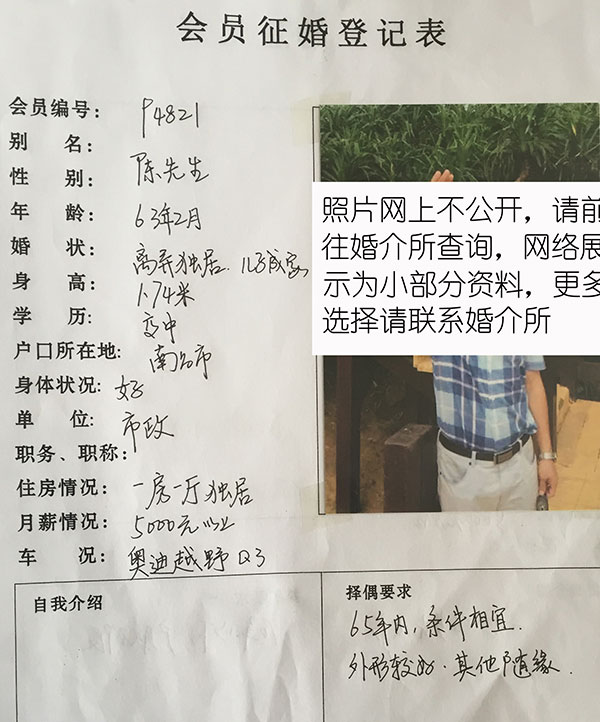 会员征婚登记表
会员编号: P4821
别 名:
性 别: 陈先生
年 龄: 63年2月
婚 状: 离异独居.儿子成家
身 高: 1.74米
学 历: 高中
户口所在地: 南宁市
身体状况: 好
单 位: 市政
职务、职称:
住房情况: 一房一厅独居
月薪情况: 5000元以上
车 况: 奥迪越野Q3
照片网上不公开，请前
往婚介所查询，网络展
示为小部分资料，更多
选择请联系婚介所
自我介绍
择偶要求
65年内,条件相宜.
外形较好.其他随缘.